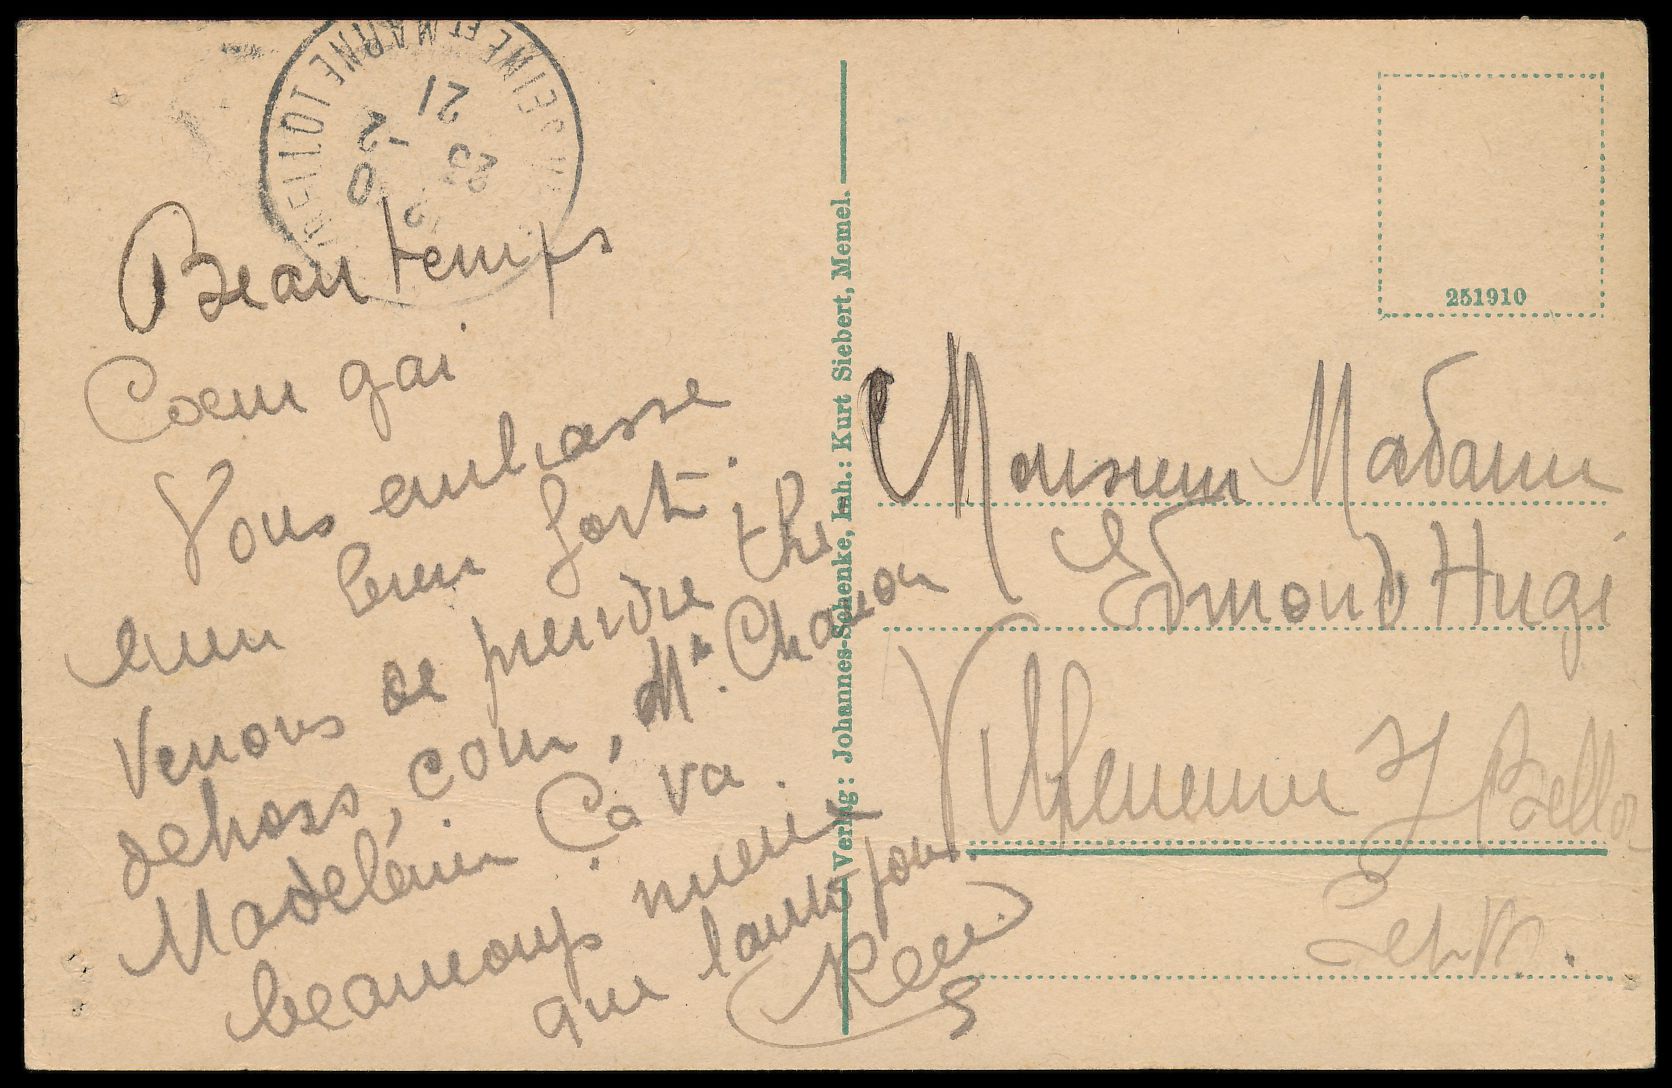 SEINE ET MARNE
21
23
-2
0
Beau temps
Coeur gai
Vous embrasse
bien fort.
Venons de prendre the
dehors, com, Chanon
Madeleine Ca va
beaucoup mieux
que l'autre jour.
René
Verlag: Johannes-Schenke, Inh.: Kurt Siebert, Memel.
251910
Monsieur Madame
Edmond Hugé
Villeneuve s/ Bellot
S et M.